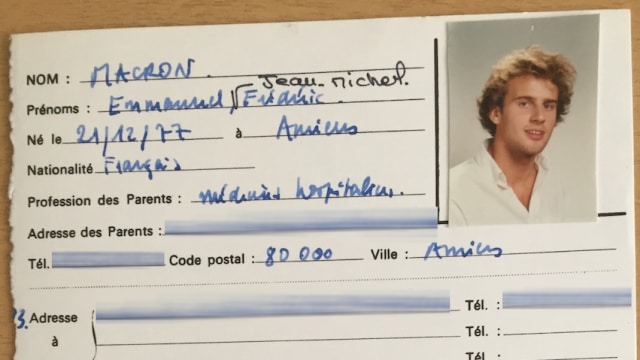 Jean-Michel.
NOM : MACRON.
Prénoms : Emmanuel, Frédéric.
Né le 21/12/77 à Amiens
Nationalité Français
Profession des Parents : médecins hospitaliers.
Adresse des Parents :
Tél. Code postal : 80 000 Ville : Amiens
Adresse Tél. :
à Tél. :
Tél. :